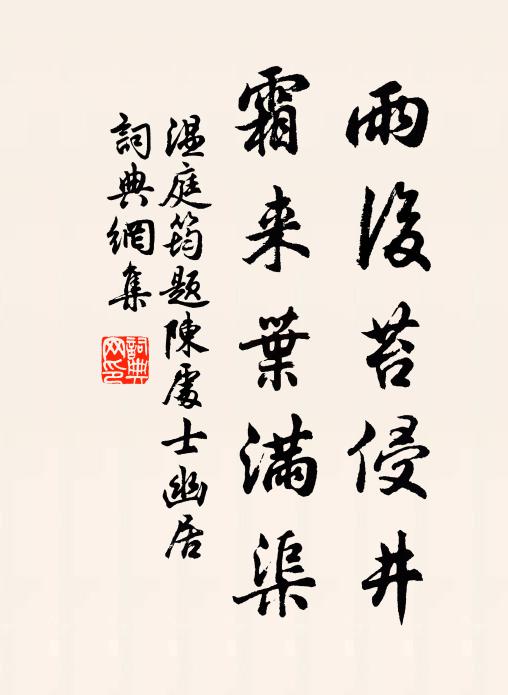 雨後苔侵井
霜来葉滿渠
温庭筠題陳處士幽居
詞典網集
詞典网印